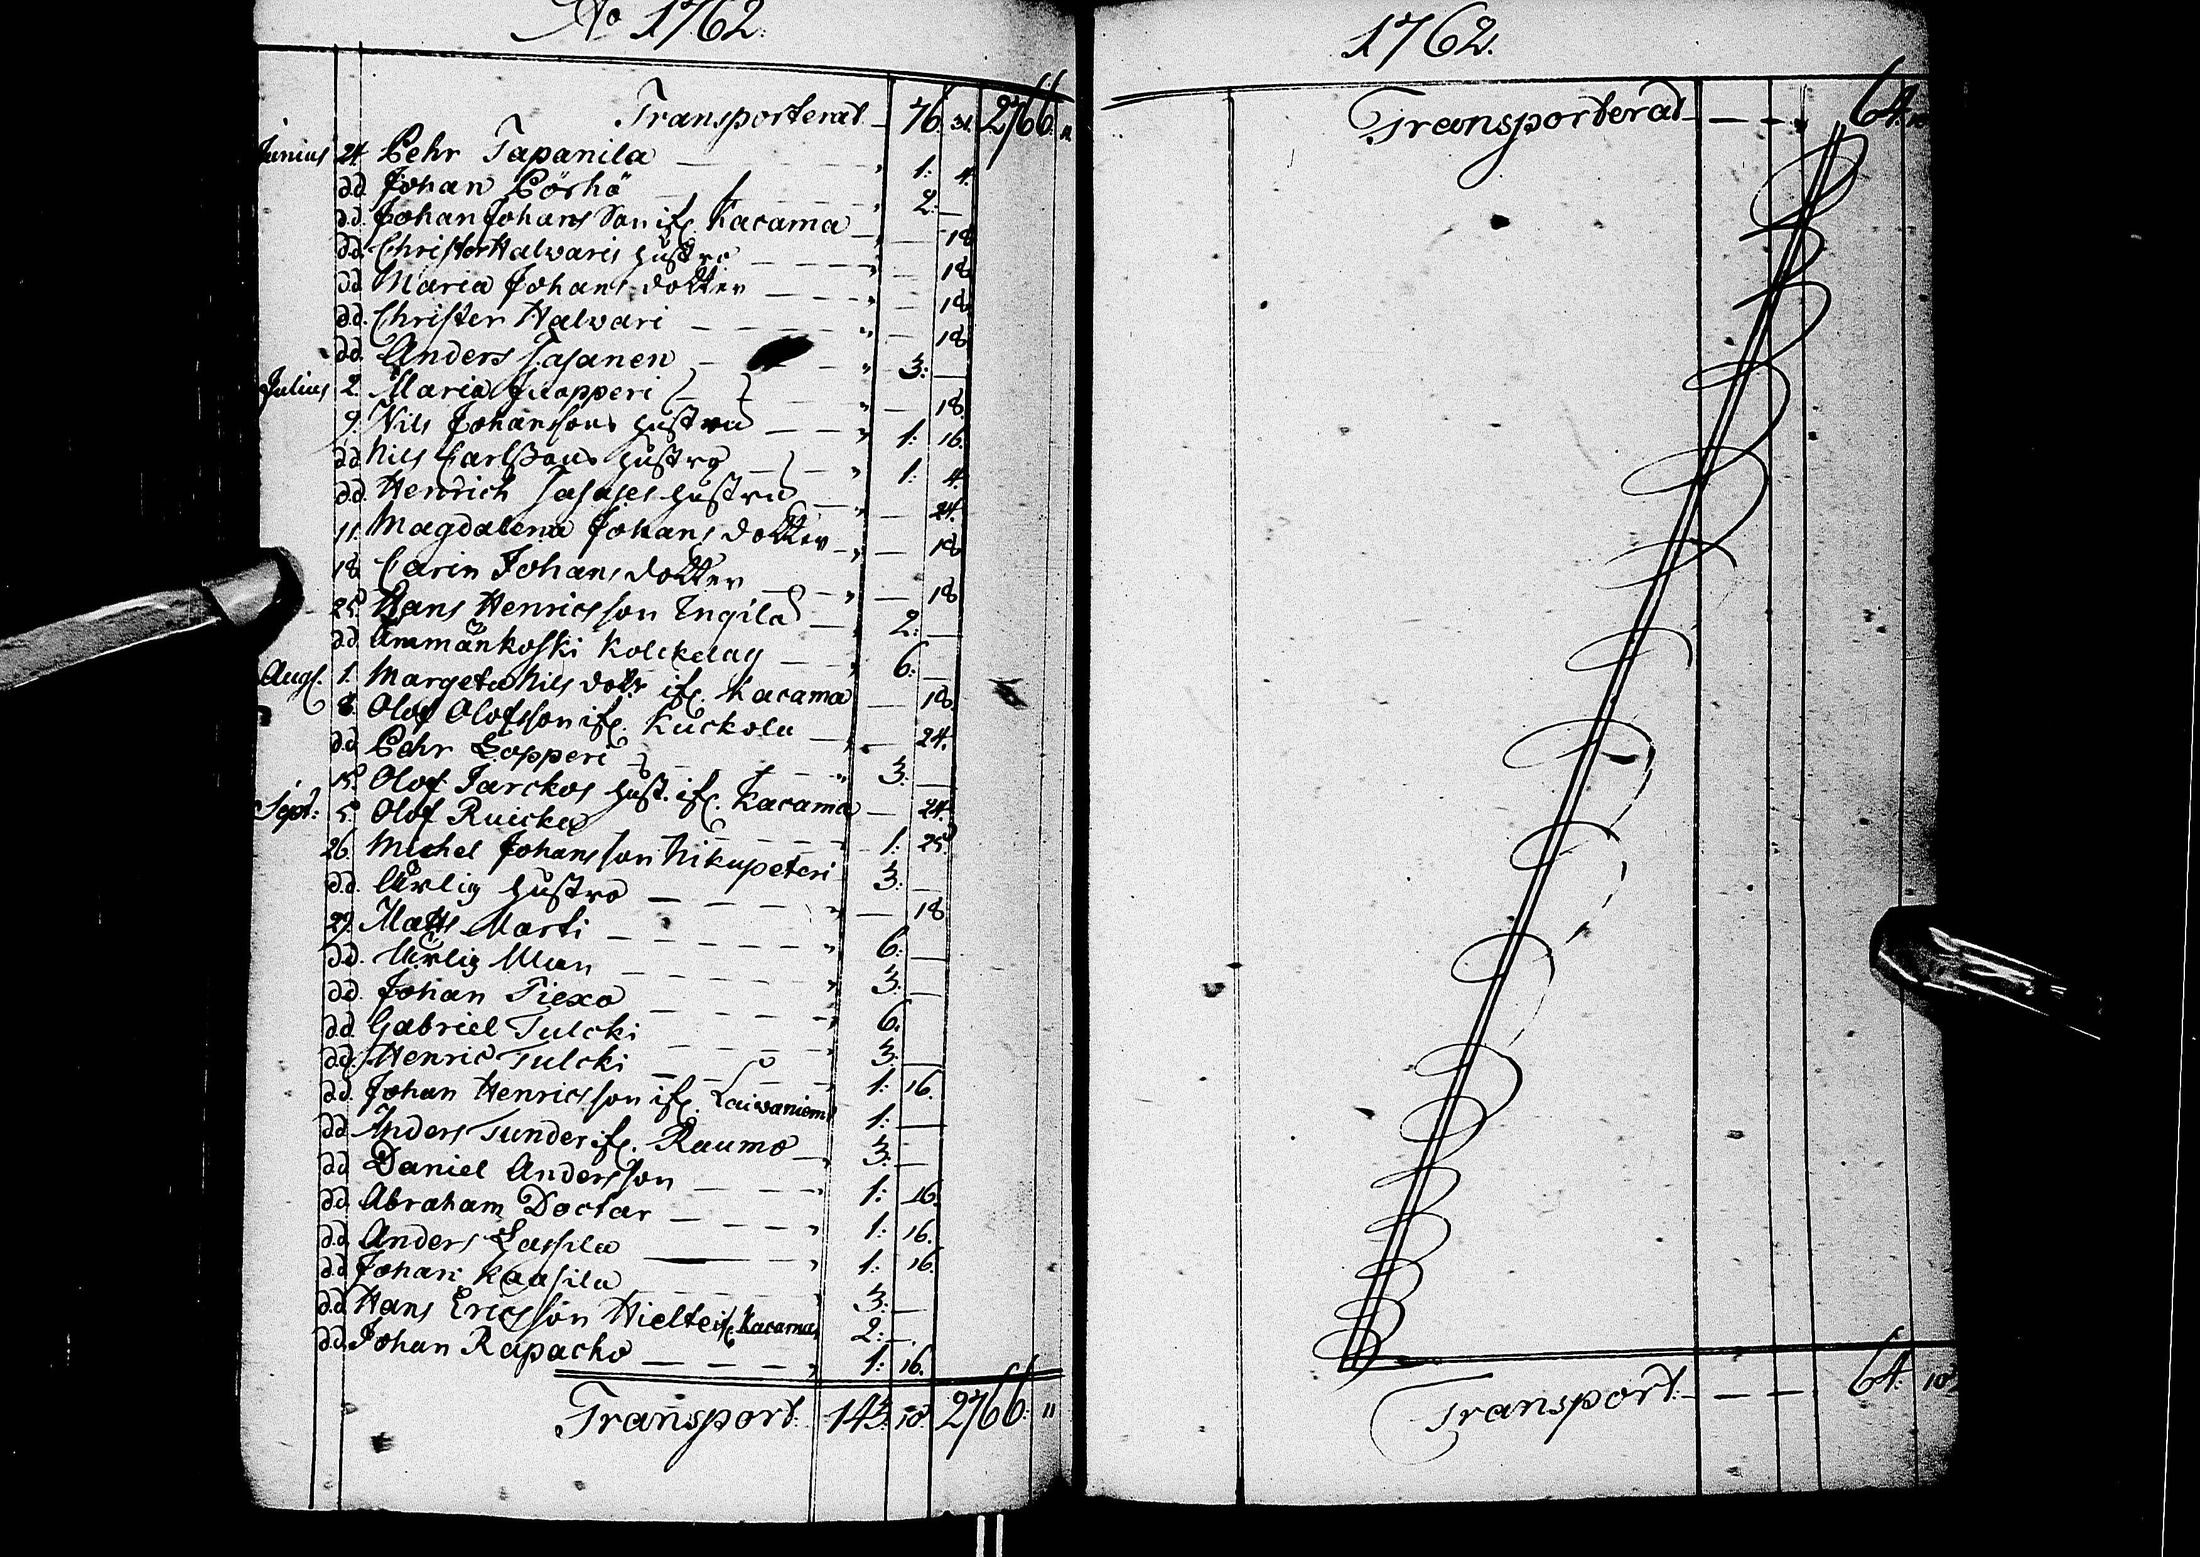 Ao 1762.
Transporterat 76. 31 2766. 11
Junius 24. Pehr Tapanila 1. 4.
dd. Johan Pörhö 2. —
dd. Johan Johans Son ifr. Kacama — 18
dd. Christer Halvaris hustro — 18
dd. Maria Johans dotter — 18
dd. Christer Halvari — 18
dd. Anders Jajanen 3. —
Julius 2. Maria — 18.
9. Nils Johanssons hustru 1. 16.
dd. Nils Carlssons hustro 1. 4.
dd. Henrich hustru — 24.
11. Magdalena Johans dotter — 18
18. Carin Johans dotter — 18
25. Hans Henricsson Ingila 2. —
dd. Ämmänkoski Kolckelag 6. —
Aug. 1. Margeta Nils dotr ifr. Kacama — 18
8. Olof Olofsson ifr. Kuckola — 24.
dd. Pehr Lopperi 3. —
15. Olof Jarckos hust. ifr. Kacama — 24.
Sept. 5. Olof Ruicka 1. 25.
26. Michel Johansson Nikupeteri 3. —
dd. Ärlig hustro — 18
29. Matts Marti 6. —
dd. Ärlig Man 3. —
dd. Johan Piexo 6.
dd. Gabriel Tulcki 3. —
dd. Henric Tulcki 1. 16.
dd. Johan Henricsson ifr. Laivaniemi 1. —
dd. Anders Tunder ifr. Raumo 3. —
dd. Daniel Andersson 1. 16.
dd. Abraham Doctar 1. 16.
dd. Anders Lassila 1. 16.
dd. Johan Kaasila 3. —
dd. Hans Ericsson Hielte ifr. Kacama 2. —
dd. Johan Rapacko 1. 16.
Transport. 143. 10 2766. 11
1762.
Transporterat — — 64. 10
Transport. — — 64. 10